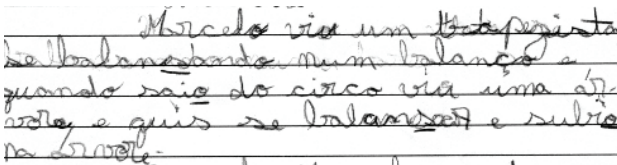 Marcelo viu um trapezista
se balansando num balanço e
quando saio do circo viu uma ár-
vore, e quis se balansar e subio
na árvore.